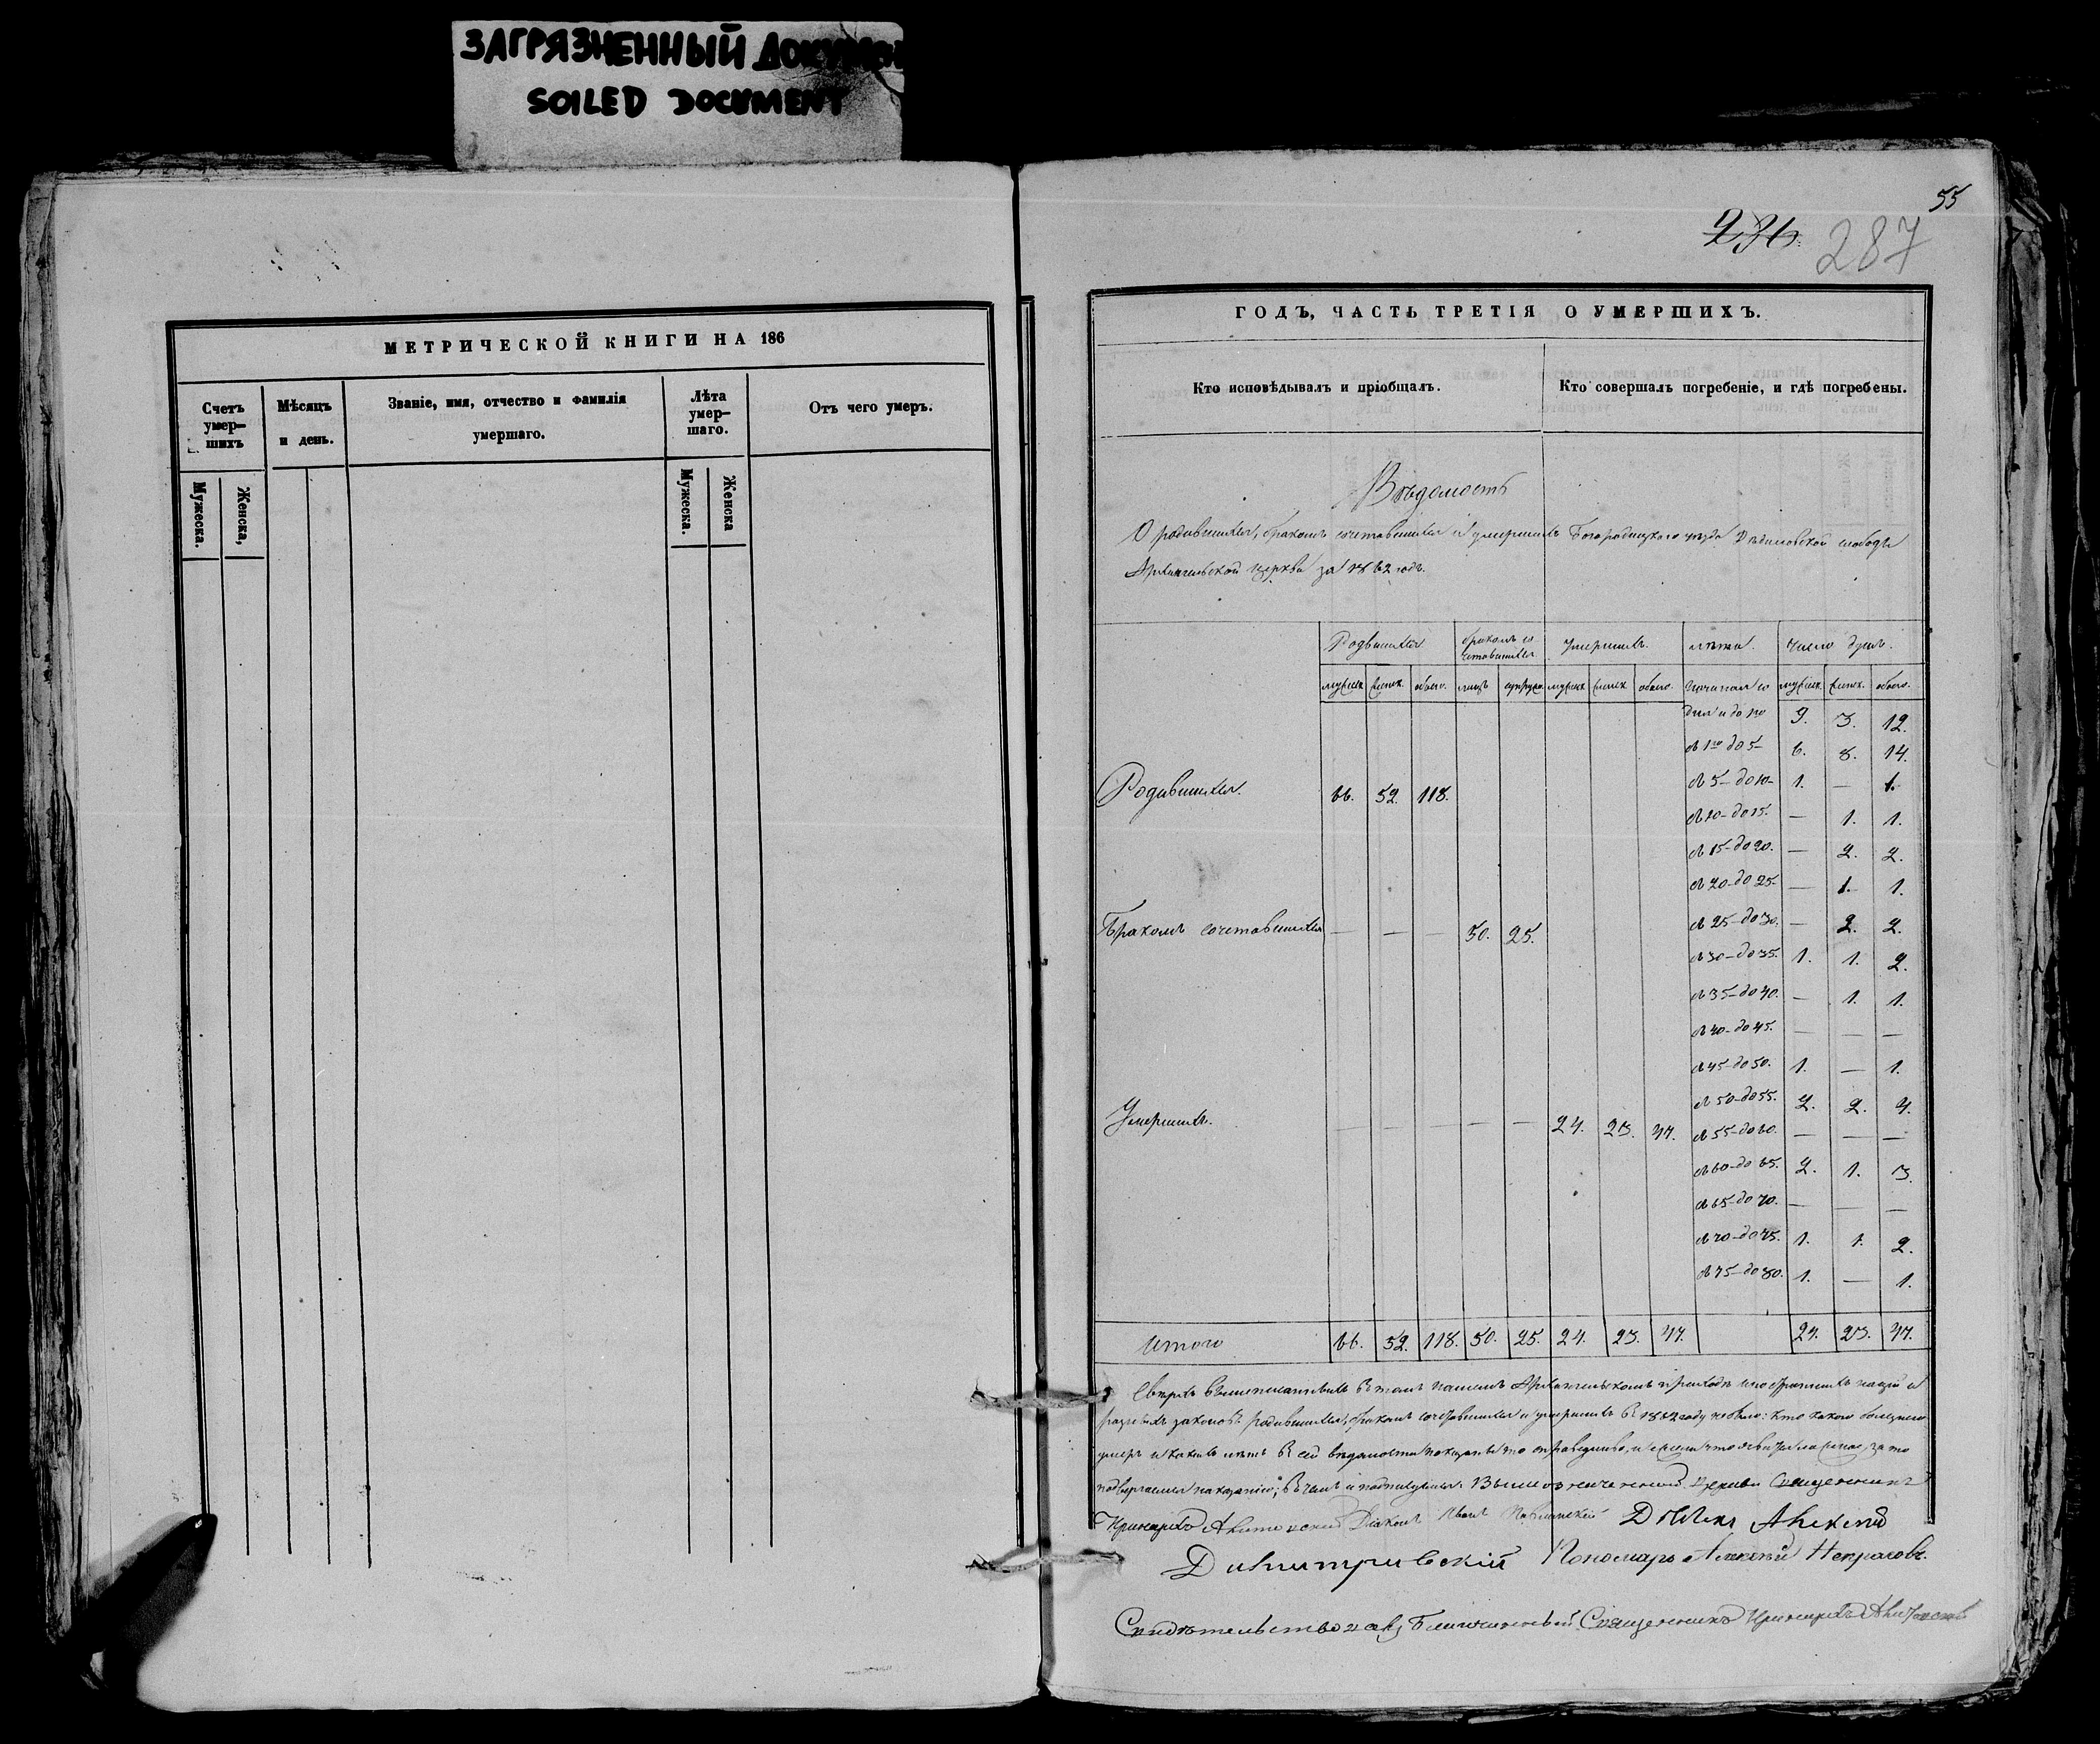 ЗАГРЯЗНЕННЫЙ ДОКУМЕН
SOILED DOCUMENT
МЕТРИЧЕСКОЙ КНИГИ НА 186
Счетъ умер- шихъ
Мѣсяцъ и день.
Званіе, имя, отчество и фамилія умершаго.
Лѣта умер- шаго.
Отъ чего умеръ.
Мужеска.
Женска,
Мужеска.
Женска
55
236. 287
ГОДЪ, ЧАСТЬ ТРЕТІЯ О УМЕРШИХЪ.
Кто исповѣдывалъ и пріобщалъ.
Кто совершалъ погребеніе, и гдѣ погребены.
Вѣдомость
О родившихся, бракомъ сочетавшихся и умершихъ Богородицкаго уѣзда Дѣдиловской слободы
Архангельской церкви за 1862 годъ.
Родившихся бракомъ со- четавшихся Умершихъ. лѣта. число душъ.
мужеск женск. обоего. лицъ супруж. мужеск женск обоего. начиная со мужеск. женск. обоего.
дня и до 1го 9. 3. 12.
съ 1го до 5- 6. 8. 14.
съ 5- до 10- 1. — 1.
Родившихся. 66. 52. 118.
съ 10- до 15. — 1. 1.
съ 15- до 20. — 2. 2.
съ 20- до 25- — 1. 1.
съ 25- до 30. — 2. 2.
Бракомъ сочетавшихся — — — 50. 25.
съ 30- до 35. 1. 1. 2.
съ 35- до 40. — 1. 1.
съ 40- до 45. — — —
съ 45- до 50. 1. — 1.
съ 50- до 55. 2. 2. 4.
Умершихъ. — — — — — 24. 23. 47. съ 55- до 60. — — —
съ 60- до 65. 2. 1. 3.
съ 65- до 70. — — —
съ 70- до 75. 1. 1. 2.
съ 75- до 80. 1. — 1.
Итого 66. 52. 118. 50. 25. 24. 23. 47. 24. 23. 47.
Сверхъ вышеписанныхъ въ томъ нашемъ Архангельскомъ приходѣ иностранныхъ націй и
разныхъ законовъ родившихся, бракомъ сочетавшихся и умершихъ въ 1862 году не было: кто какою болезнію
умеръ и какихъ лѣтъ въ сей вѣдомости показаны то справедливо, и если что за то
подвергаемся наказанію; въ чемъ и подписуемся. Вышеозначенной Церкви Священникъ
Діаконъ Иванъ Дьячекъ Алексей
Димитриевскій Пономарь Алексѣй Некрасовъ.
Свидѣтельствовалъ Благочинный Священникъ